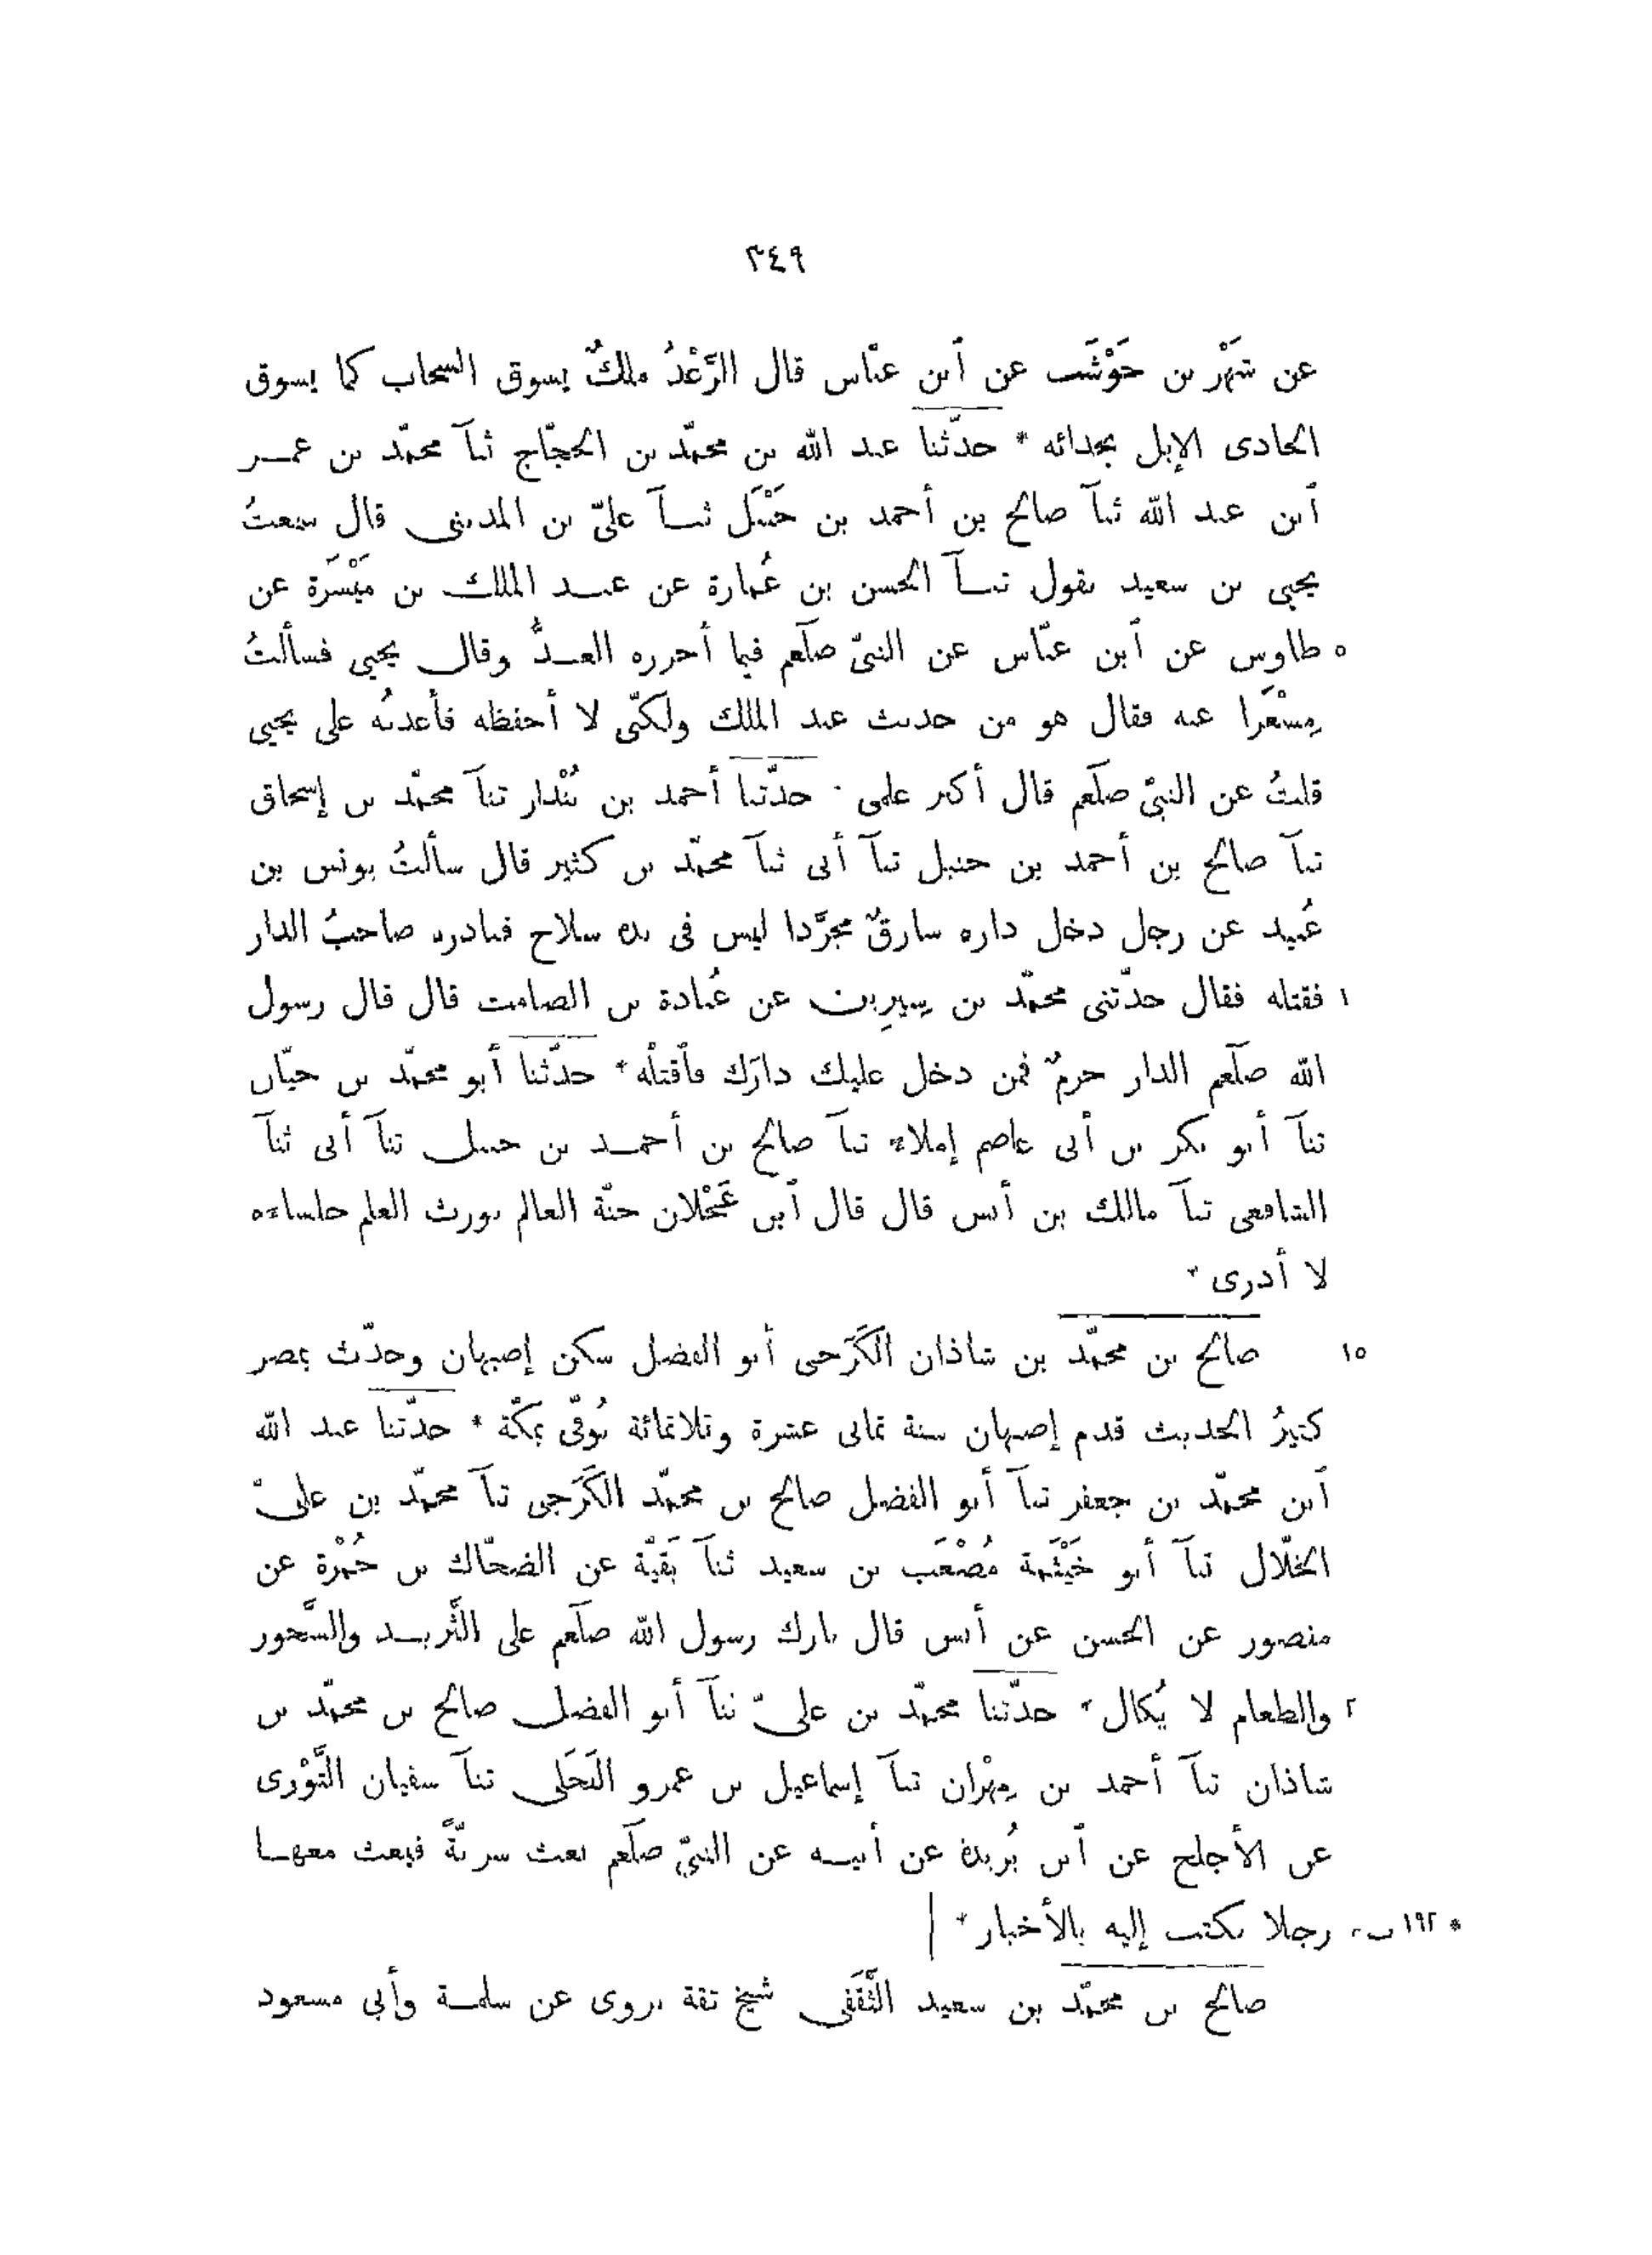 ٣٤٩
عن شَهْر بن حَوْشَب عن ٱبن عبّاس قال الرَّعْدُ ملكٌ يسوق السحاب كما يسوق
الحادى الإبل بحدائه * حدّثنا عبد الله بن محمّد بن الحجّاج ثنآ محمّد بن عمر
ٱبن عبد الله ثنآ صالح بن أحمد بن حَنْبَل ثنآ علىّ بن المدينى قال سمعتُ
يحيى بن سعيد يقول ثنآ الحسن بن عُمارة عن عبد الملك بن مَيْسَرَة عن
٥ طاوس عن ٱبن عبّاس عن النبىّ صلّعم فيما أحرزه العدوُّ وقال يحيى فسألتُ
مِسْعَرا عنه فقال هو من حديث عبد الملك ولكنّى لا أحفظه فأعدتُه على يحيى
قلتُ عن النبىّ صلّعم قال أكبر علمى * حدّثنا أحمد بن بُنْدار ثنآ محمّد بن إسحاق
ثنآ صالح بن أحمد بن حنبل ثنآ أبى ثنآ محمّد بن كثير قال سألتُ يونس بن
عُبيد عن رجل دخل داره سارقٌ مجرَّدا ليس فى يده سلاح فبادره صاحبُ الدار
١ فقتله فقال حدّثنى محمّد بن سِيرِين عن عُبادة بن الصامت قال قال رسول
الله صلّعم الدار حرمٌ فمن دخل عليك دارَك فٱقتلْه * حدّثنا أبو محمّد بن حيّان
ثنآ أبو بكر بن أبى عاصم إملاءً ثنآ صالح بن أحمد بن حنبل ثنآ أبى ثنآ
الشافعى ثنآ مالك بن أنس قال قال ٱبن عَجْلان جنّة العالم يورث العلم جلساءه
لا أدرى *
١٥ صالح بن محمّد بن شاذان الكَرَجى أبو الفضل سكن إصبهان وحدّث بمصر
كثيرُ الحديث قدم إصبهان سنة ثمانى عشرة وثلاثمائة تُوفّى بمكّة * حدّثنا عبد الله
ٱبن محمّد بن جعفر ثنآ أبو الفضل صالح بن محمّد الكَرَجى ثنآ محمّد بن علىّ
الخلّال ثنآ أبو خَيْثَمة مُصْعَب بن سعيد ثنآ بَقيّة عن الضحّاك بن حُمْرة عن
منصور عن الحسن عن أنس قال بارك رسول الله صلّعم على الثَّريد والسَّحور
٢ والطعام لا يُكال * حدّثنا محمّد بن علىّ ثنآ أبو الفضل صالح بن محمّد بن
شاذان ثنآ أحمد بن مِهْران ثنآ إسماعيل بن عمرو البَجَلى ثنآ سفيان الثَّوْرى
عن الأجلح عن ٱبن بُريدة عن أبيه عن النبىّ صلّعم بعث سريّةً فبعث معها
* ١٩٢ ب، رجلا يكتب إليه بالأخبار * |
صالح بن محمّد بن سعيد الثَّقَفى شيخ ثقة يروى عن سلمة وأبى مسعود